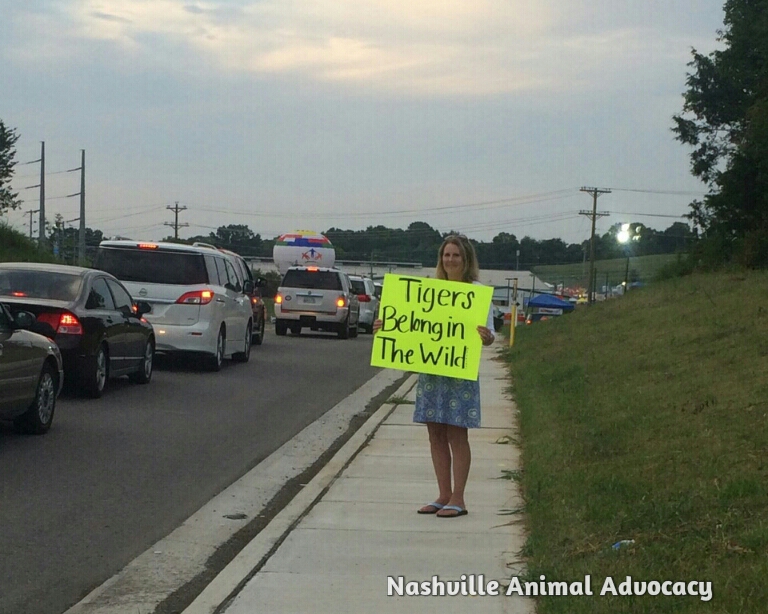 Tigers
Belong in
The Wild
Nashville Animal Advocacy